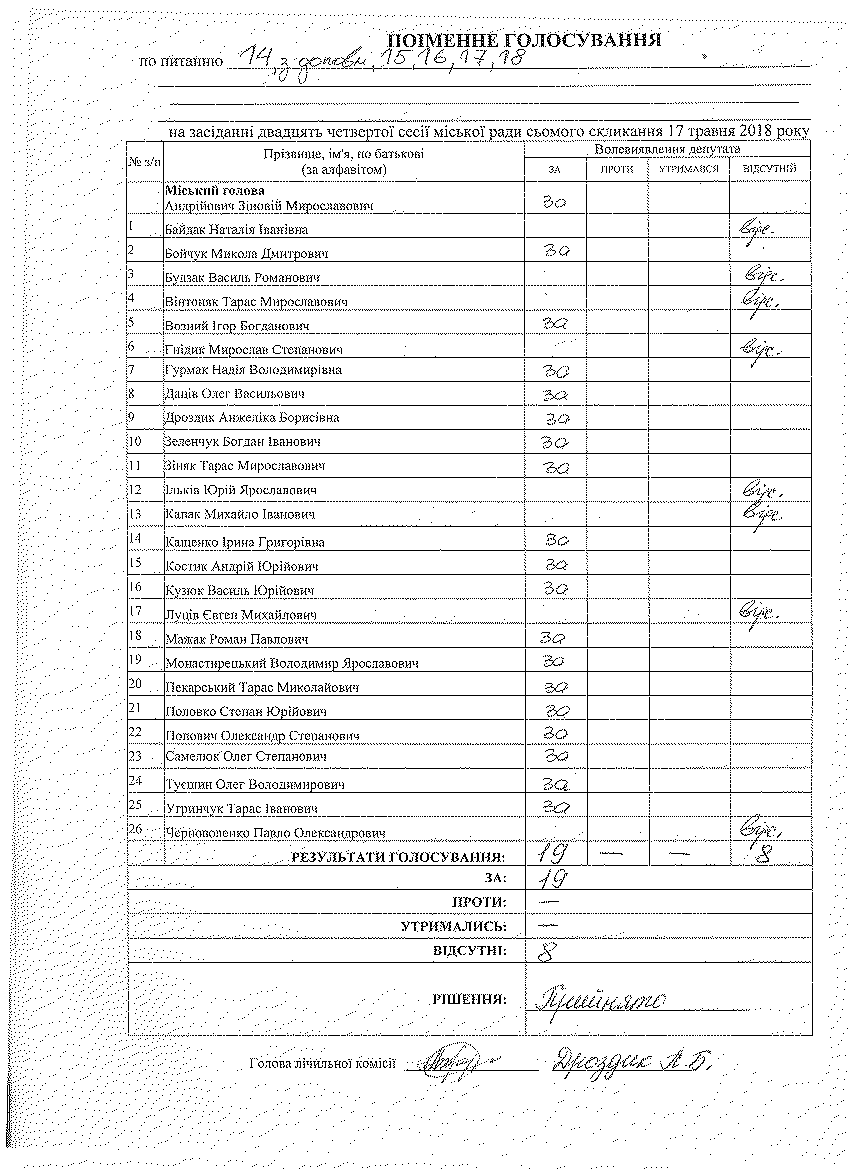 ПОІМЕННЕ ГОЛОСУВАННЯ
по питанню 14, з доповн, 15, 16, 17, 18
на засіданні двадцять четвертої сесії міської ради сьомого скликання 17 травня 2018 року
№ з/п Прізвище, ім'я, по батькові (за алфавітом) Волевиявлення депутата
ЗА ПРОТИ УТРИМАВСЯ ВІДСУТНІЙ
Міський голова
Андрійович Зіновій Мирославович за
1 Байдак Наталія Іванівна відс.
2 Бойчук Микола Дмитрович за
3 Будзак Василь Романович відс.
4 Вінтоняк Тарас Мирославович відс.
5 Возний Ігор Богданович за
6 Гнідик Мирослав Степанович відс.
7 Гурмак Надія Володимирівна за
8 Даців Олег Васильович за
9 Дроздик Анжеліка Борисівна за
10 Зеленчук Богдан Іванович за
11 Зіняк Тарас Мирославович за
12 Ільків Юрій Ярославович відс.
13 Капак Михайло Іванович відс.
14 Кащенко Ірина Григорівна за
15 Костик Андрій Юрійович за
16 Кузюк Василь Юрійович за
17 Луців Євген Михайлович відс.
18 Мажак Роман Павлович за
19 Монастирецький Володимир Ярославович за
20 Пекарський Тарас Миколайович за
21 Половко Степан Юрійович за
22 Попович Олександр Степанович за
23 Самелюк Олег Степанович за
24 Туєшин Олег Володимирович за
25 Угринчук Тарас Іванович за
26 Черноволенко Павло Олександрович відс.
РЕЗУЛЬТАТИ ГОЛОСУВАННЯ: 19 — — 8
ЗА: 19
ПРОТИ: —
УТРИМАЛИСЬ: —
ВІДСУТНІ: 8
РІШЕННЯ: Прийнято
Голова лічильної комісії Дроздик А.Б.